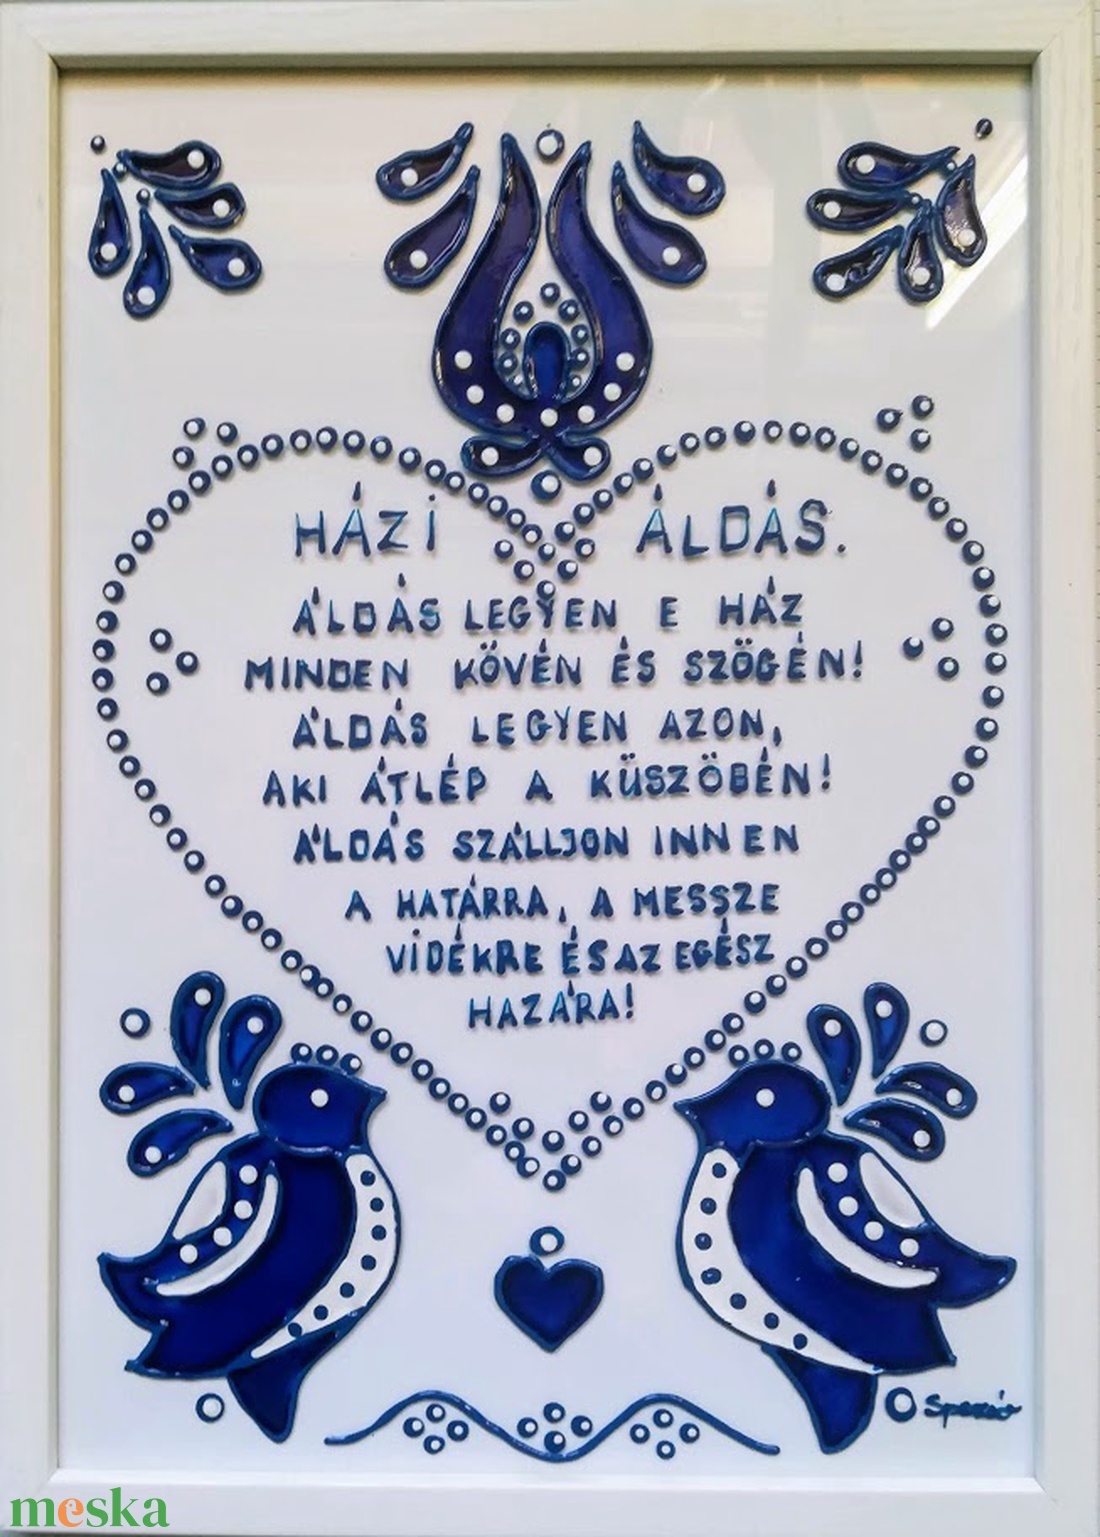 HÁZI ÁLDÁS.
ÁLDÁS LEGYEN E HÁZ
MINDEN KÖVÉN ÉS SZÖGÉN!
ÁLDÁS LEGYEN AZON,
AKI ÁTLÉP A KÜSZÖBÉN!
ÁLDÁS SZÁLLJON INNEN
A HATÁRRA, A MESSZE
VIDÉKRE ÉS AZ EGÉSZ
HAZÁRA!
meska